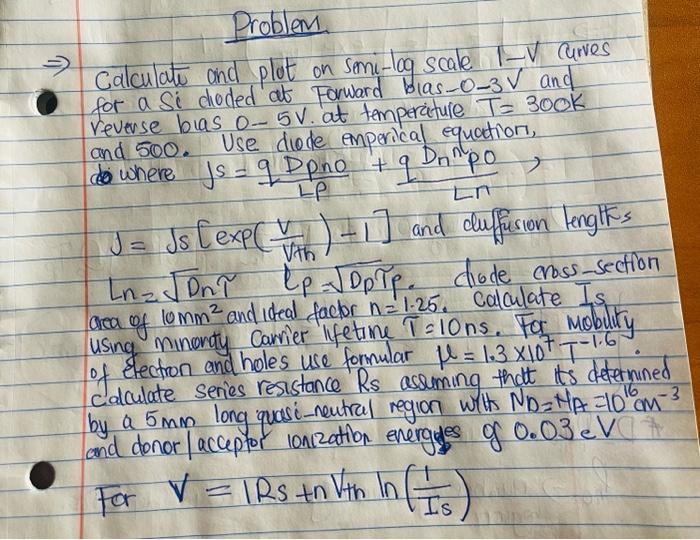 Problem
⇒ Calculate and plot on semi-log scale I-V Curves
for a Si dioded at Forward bias-0-3V and
reverse bias 0-5V. at temperature T= 300K
and 500. Use diode emperical equation,
where Js = q Dpno / Lp + q Dn npo / Ln ,
J = Js [exp(V/Vth) - 1] and diffusion lengths
Ln = √Dnτ Lp = √Dpτp. diode cross-section
area of 10mm² and ideal factor n=1.25. Calculate Is
using minority Carrier lifetime T=10ns. For Mobility
of electron and holes use formular μ = 1.3 ×10⁷ T⁻¹·⁶.
Calculate series resistance Rs assuming that its determined
by a 5mm long quasi-neutral region with ND=NA=10¹⁶cm⁻³
and donor/acceptor ionization energyes of 0.03eV
For V = IRs +nVth ln(I/Is)